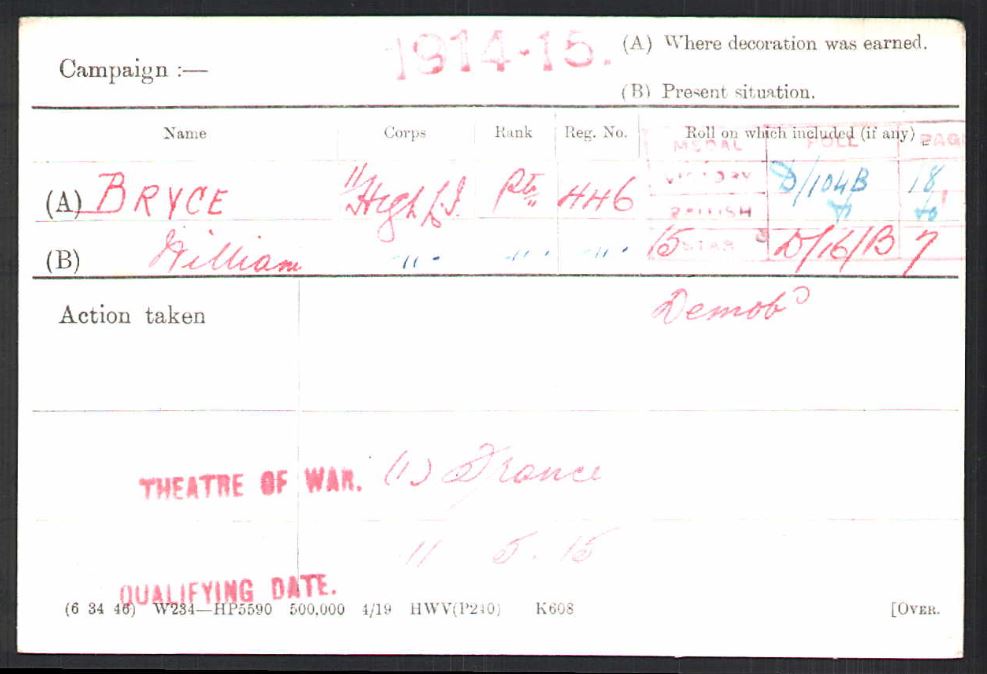 Campaign :— 1914-15. (A) Where decoration was earned.
(B) Present situation.
Name Corps Rank Reg. No. Roll on which included (if any)
MEDAL ROLL PAGE
(A) BRYCE 11/High L.I. Pte 446 VICTORY D/104B 18
BRITISH do do
(B) William " " " 15 STAR D/16/B 7
Action taken Demobd
THEATRE OF WAR. (1) France
11 5. 15
QUALIFYING DATE.
(6 34 46) W234—HP5590 500,000 4/19 HWV(P240) K608 [OVER.